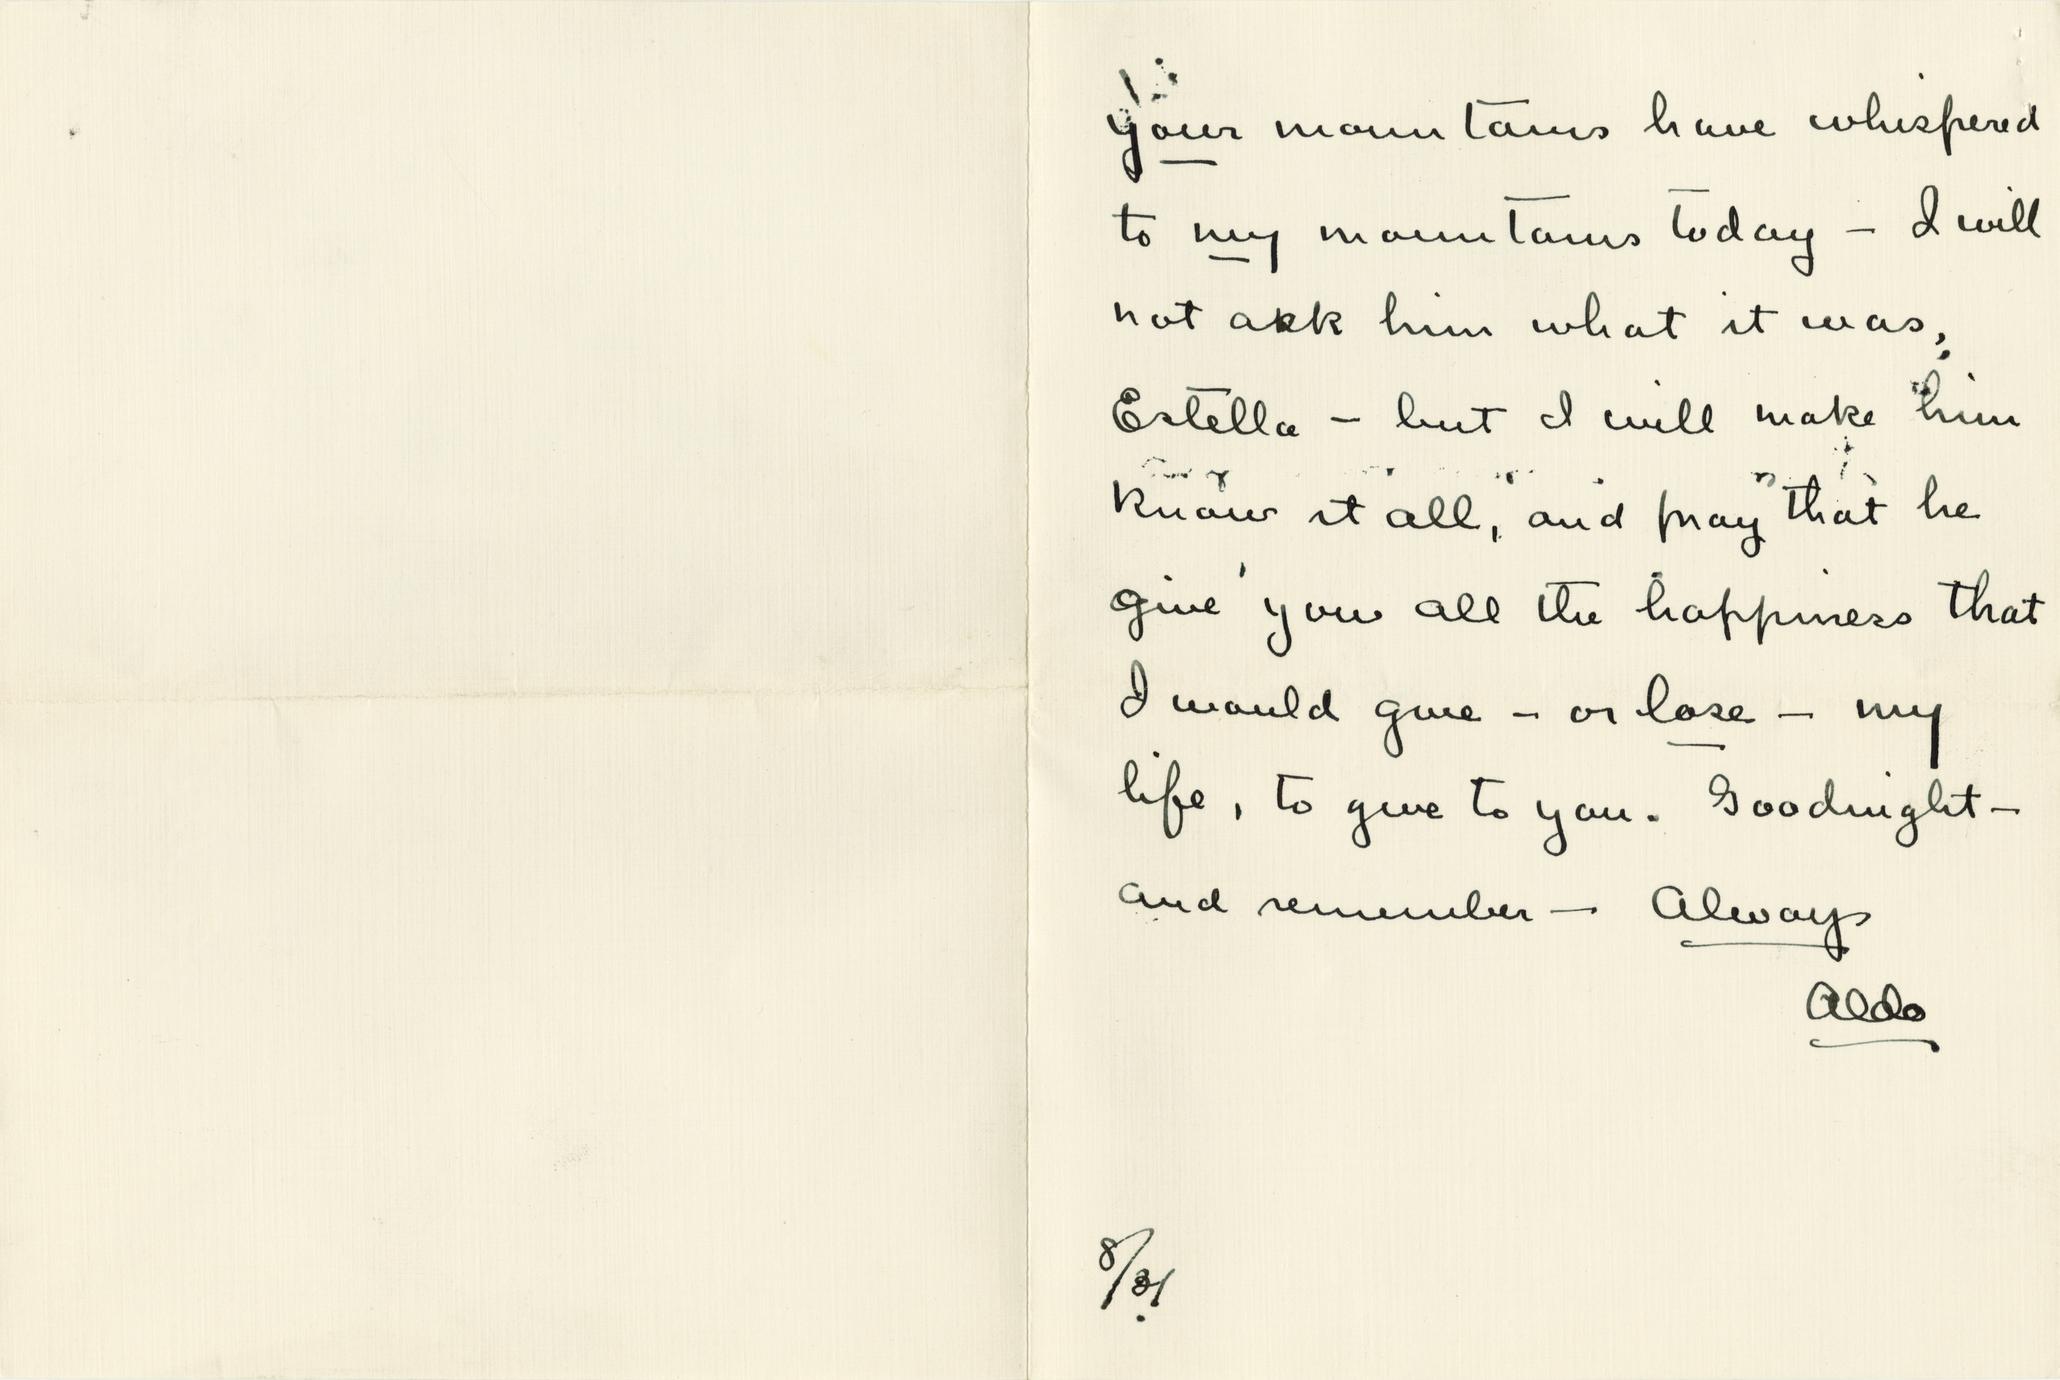 your mountains have whispered
to my mountains today – I will
not ask him what it was,
Estella – but I will make him
know it all, and pray that he
give you all the happiness that
I would give – or lose – my
life, to give to you. Goodnight –
and remember – Always
Aldo
8/31